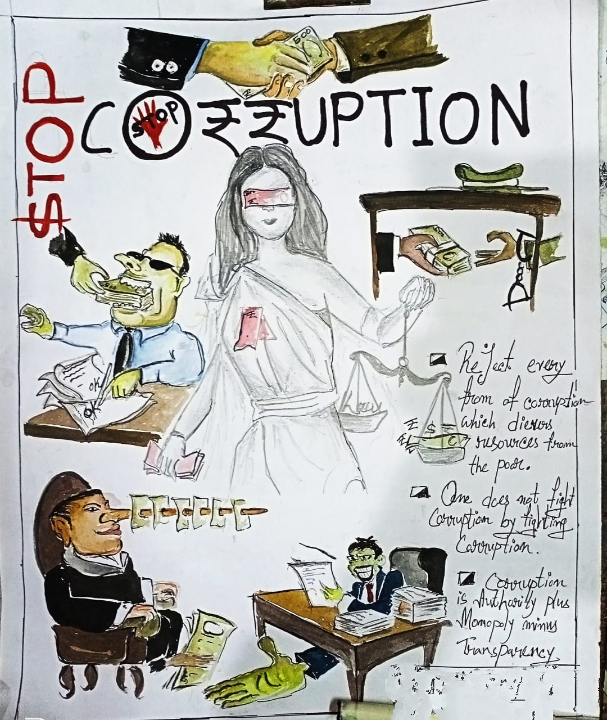 $TOP
CO₹₹UPTION
STOP
500
OK
OK
Law
₹ $ €
Reject every
from of corruption
which
resources from
the poor.
One does not fight
Corruption by fighting
Corruption.
Corruption
is Authority plus
Monopoly minus
Transparency